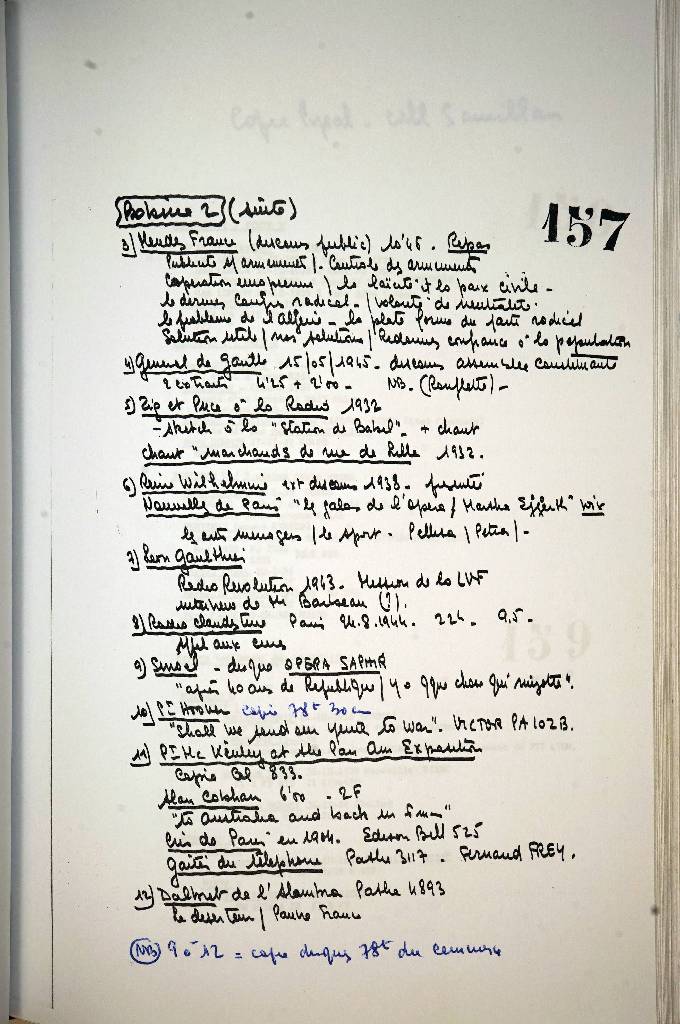 157
Bobine 2 (suite)
3) Mendes France (discours public) 10'45. Repas
Publicité s/ armement /. Controle des armements
Cooperation europeenne / la laïcité et la paix civile -
le dernier Congrès radical - / volonté de neutralité.
le problème de l'Algérie - la plate forme du parti radical
Solution utile / nos solutions / Redonner confiance à la population
4) General de Gaulle 15/05/1945. discours assemblee constituante
2 extraits 4'25 + 2'00 - NB. (Ronflette) -
5) Zig et Puce à la Radio 1932
- sketch à la "Station de Babel" - + chant
chant "marchands de rue de Lille 1932.
6) Reine Wilhelmine ext discours 1938. 
Nouvelles de Paris "le gala de l'Opera / Martha Eggerth"
les arts menagers / le sport - / Petra / -
7) Leon Gaulthier
Radio Revolution 1943. Mission de la LVF
interview de Mr (?).
8) Radio clandestine Paris 24.8.1944. 22h. 9,5 -
Appel aux cures
9) - disque OPERA SAPHIR
"après 40 ans de Republique / y a qque chose qui".
10) Pt Hoover copie 78t 30cm
"Shall we send our youth to war". VICTOR PA 102B.
11) Pt Mc Kinley at the Pan Am Exposition
Copie Col 833.
Alan Cobham 6'00 - 2F
"to Australia and back in 5 m—"
Cris de Paris en 1904. Edison Bell 525
gaités du téléphone Pathe 3117. Fernand FREY.
12) Dalbret de l'Alambra Pathe 4893
Le deserteur / Pauvre France
(NB) 9 à 12 = copie disques 78t du commerce